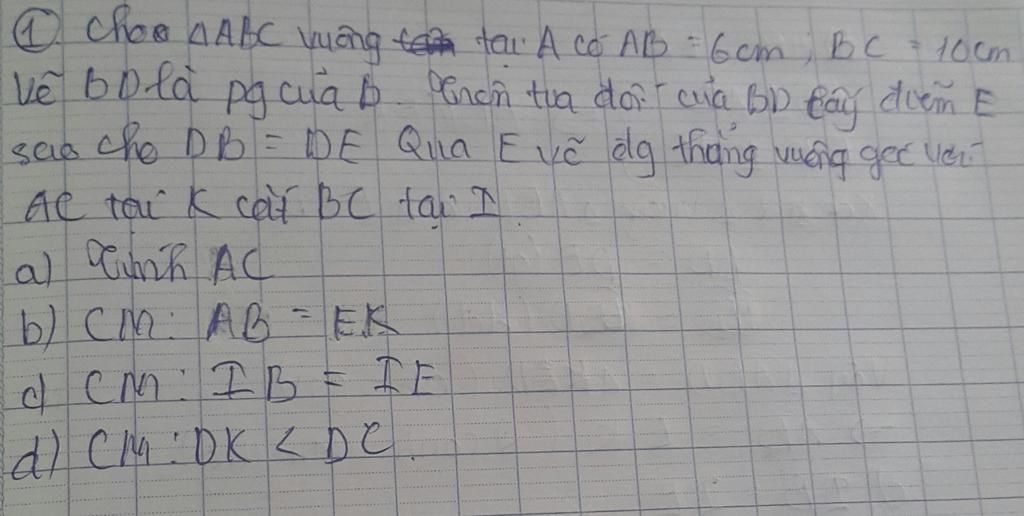 ① Cho ΔABC vuông tại A có AB = 6cm, BC = 10cm
Vẽ BD là pg của B. Trên tia đối của BD lấy điểm E
sao cho DB = DE Qua E vẽ đg thẳng vuông góc với
AC tại K cắt BC tại I.
a) Tính AC
b) CM: AB = EK
c) CM: IB = IE
d) CM: DK < DC.